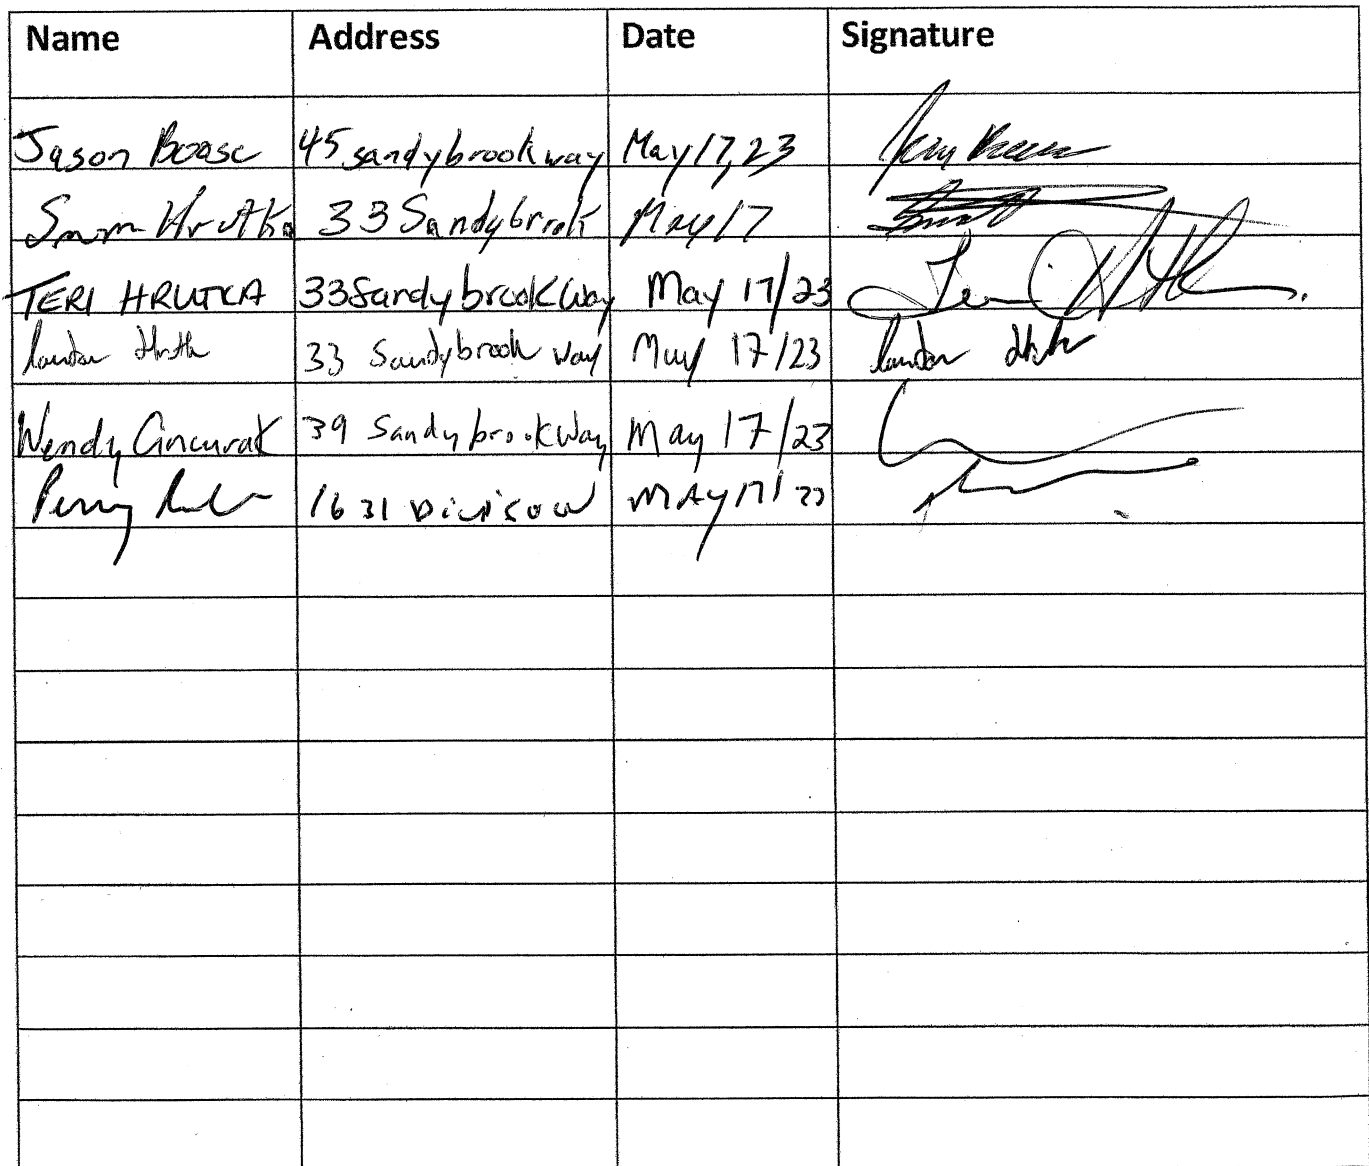 Name Address Date Signature
Jason Boase 45 sandybrook way May 17, 23
Hrutka 33 Sandybrook May 17
TERI HRUTKA 33 Sandybrook Way May 17/23 Teri
33 Sandybrook way May 17/23
Wendy Cincurak 39 Sandybrook Way May 17/23
Perry 1631 Division MAY 17/23